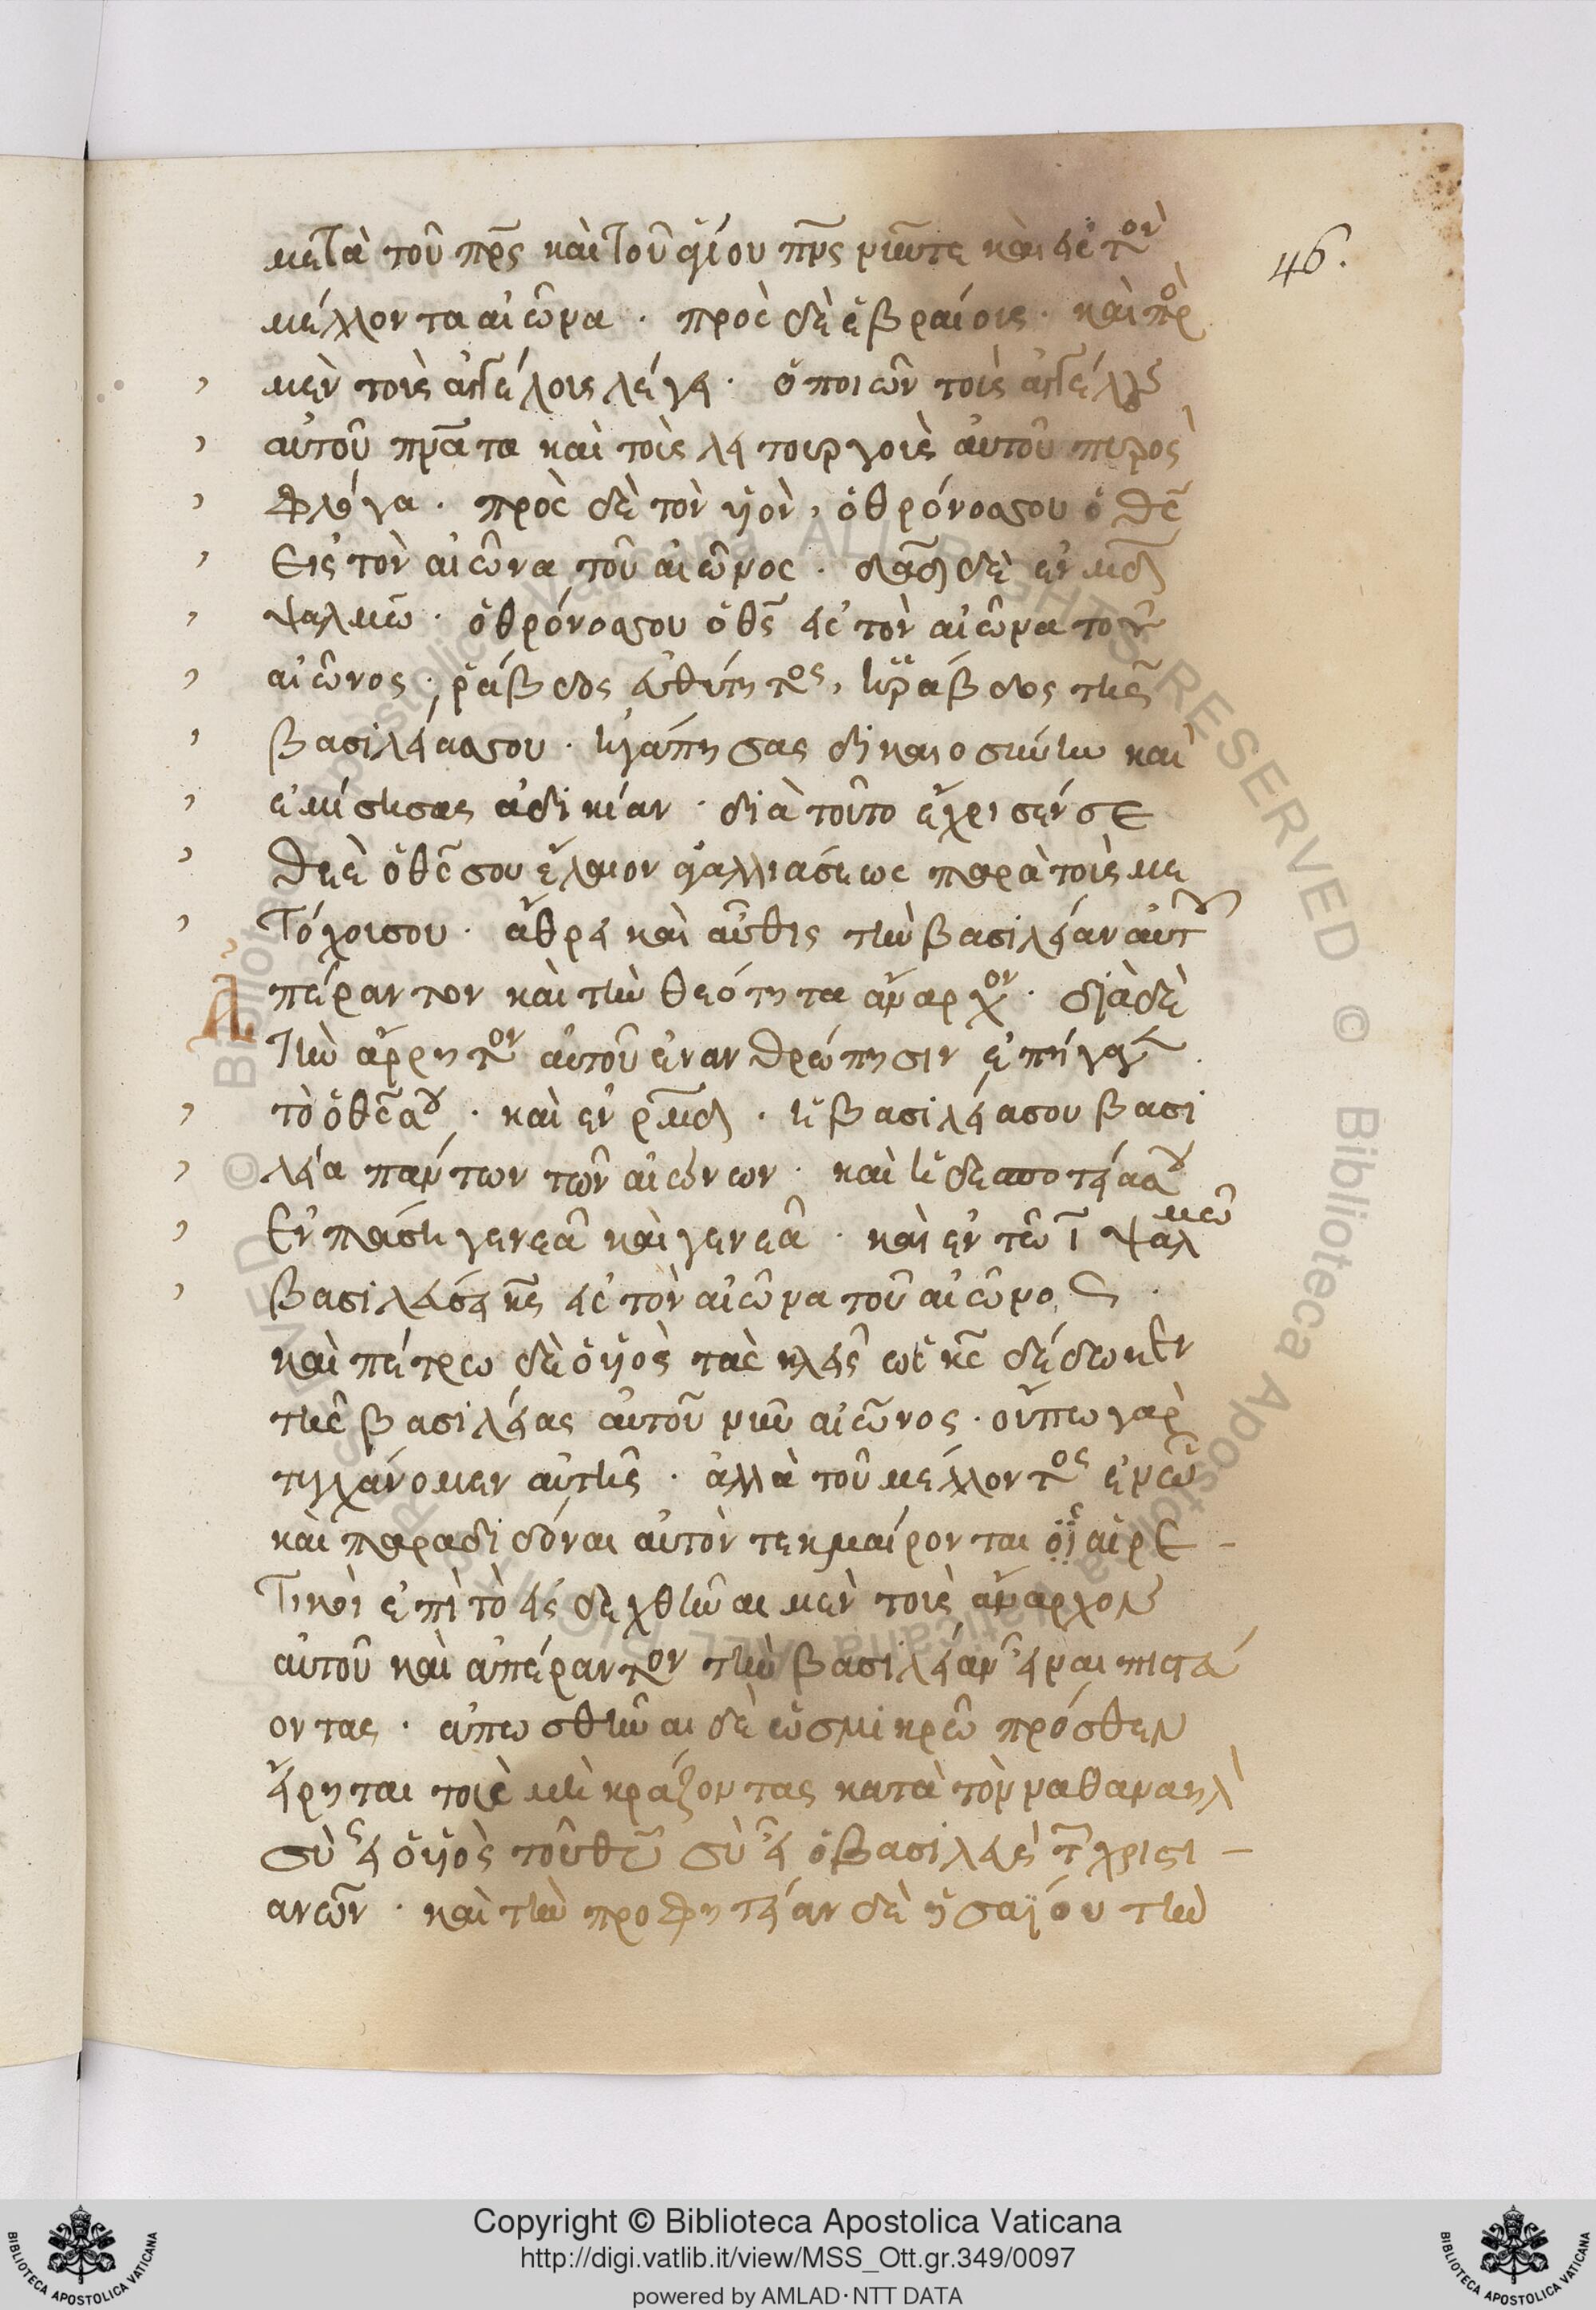 μετὰ τοῦ πρς καὶ τοῦ ἁγίου πνς νῦν τε καὶ εἰς τὸν
46.
μέλλοντα αἰῶνα · πρὸς δὲ ἑβραίοις · καὶ πρὸ
μὲν τοὺς ἀγγέλους λέγει · ὁ ποιῶν τοὺς ἀγγέλους
αὐτοῦ πνατα καὶ τοὺς λειτουργοὺς αὐτοῦ πυρὸς
φλόγα · πρὸς δὲ τὸν υἱὸν, ὁ θρόνος σου ὁ θς
εἰς τὸν αἰῶνα τοῦ αἰῶνος · δαδ δὲ ἐν μδ
ψαλμῶ · ὁ θρόνος σου ὁ θς εἰς τὸν αἰῶνα τοῦ
αἰῶνος, ῥάβδος εὐθύτητος, ἡ ῥάβδος τῆς
βασιλείας σου · ἠγάπησας δικαιοσύνην καὶ
ἐμίσησας ἀδικίαν · διὰ τοῦτο ἔχρισέν σε
θεὲ ὁ θς σου ἔλαιον ἀγαλλιάσεως παρὰ τοὺς με
τόχους σου · ἄθρει καὶ αὖθις τὴν βασιλείαν αὐτοῦ
ἀπέραντον καὶ τὴν θεότητα ἄναρχον · διὰ δὲ
τὴν ἄρρητον αὐτοῦ ἐνανθρώπησιν ἐπήγαγε
τὸ ὁ θς σου · καὶ ἐν ρμδ · ἡ βασιλεία σου βασι
λεία πάντων τῶν αἰώνων · καὶ ἡ δεσποτεία σου
ἐν πάση γενεᾶ καὶ γενεᾶ · καὶ ἐν τῶ ῑ ψαλμῶ
βασιλεύσει κς εἰς τὸν αἰῶνα τοῦ αἰῶνος ·
καὶ πέτρω δὲ ὁ υἱὸς τὰς κλεῖς ὡς κς δέδωκεν
τῆς βασιλείας αὐτοῦ νῦν αἰῶνος · οὔπω γὰρ
τυγχάνομεν αὐτῆς · ἀλλὰ τοῦ μέλλοντος ἐρεῶ
καὶ παραδιδόναι αὐτὸν τεκμαίρονται οἱ αἱρε -
τικοὶ ἐπὶ τὸ εἰσδεχθῆναι μὲν τοὺς ἄναρχον
αὐτοῦ καὶ ἀπέραντον τὴν βασιλείαν εἶναι πιστεύ
οντας · ἀπωσθῆναι δὲ ὡς μικρῶ πρόσθεν
εἴρηται τοὺς μὴ κράζοντας κατὰ τὸν ναθαναὴλ
σὺ εἶ ὁ υἱὸς τοῦ θυ σὺ εἶ ὁ βασιλεὺς τῶν χριστι -
ανῶν · καὶ τὴν προφητείαν δὲ ἡσαΐου τὴν
Copyright © Biblioteca Apostolica Vaticana
http://digi.vatlib.it/view/MSS_Ott.gr.349/0097
powered by AMLAD·NTT DATA